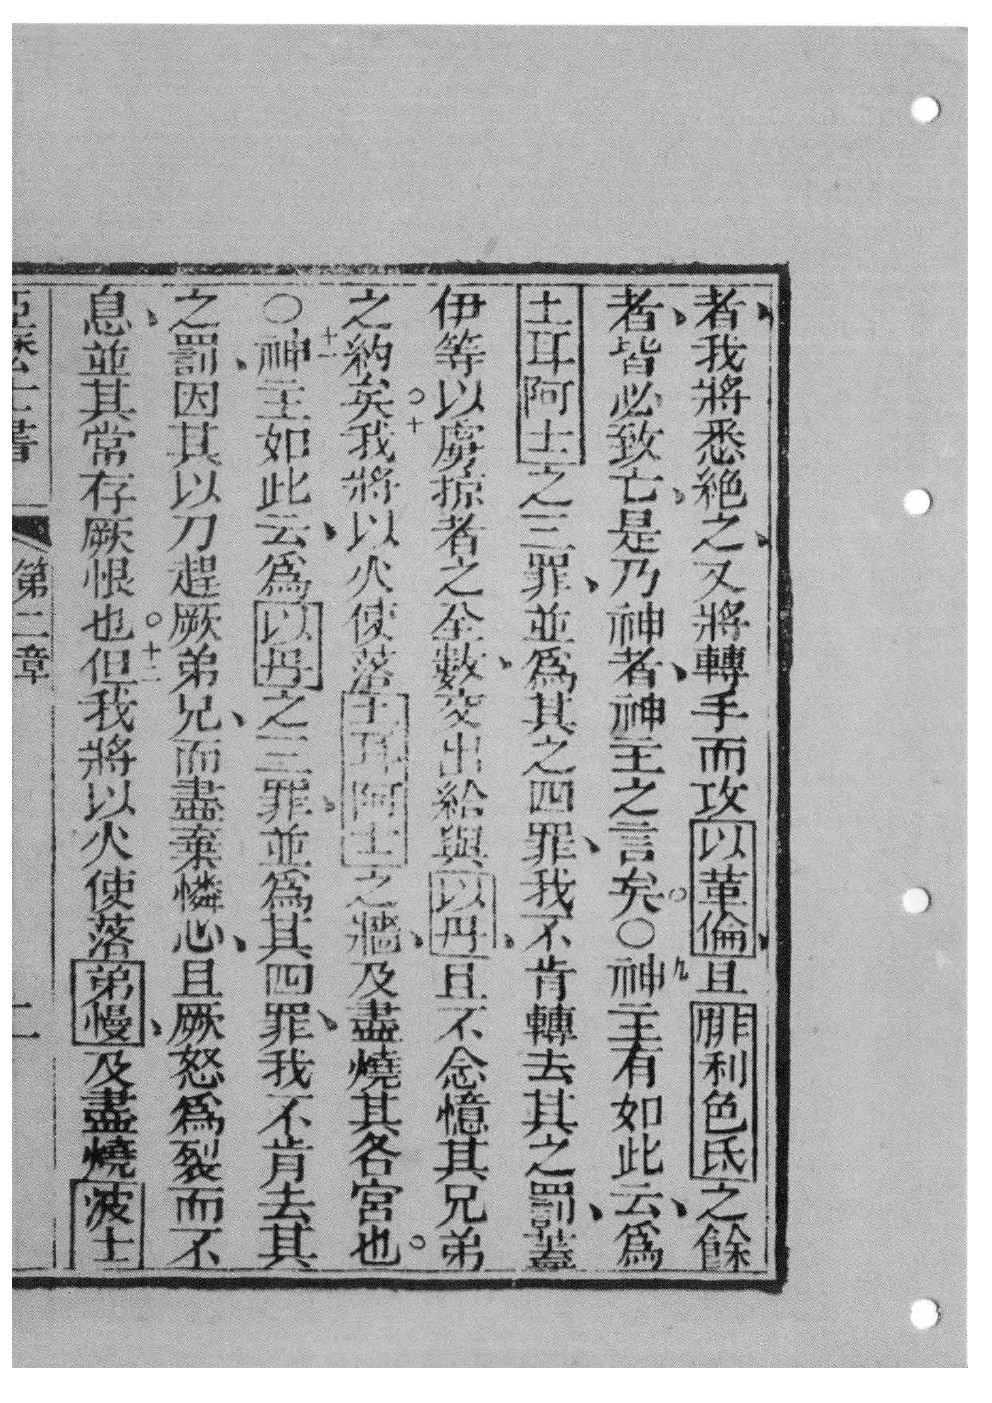 者、我將悉絕之、又將轉手而攻以革倫、且腓利色氐之餘
者、皆必致亡、是乃神者、神主之言矣。○九神主有如此云、爲
土耳阿士之三罪、並爲其之四罪、我不肯轉去其之罰、蓋
伊等以虜掠者之全數、交出給與以丹、且不念憶其兄弟
之納矣。十我將以火使落土耳阿士之牆、及盡燒其各宮也。
○十一神主如此云、爲以丹之三罪、並爲其四罪、我不肯去其
之罰、因其以刀趕厥弟兄、而盡棄憐心、且厥怒爲裂而不
息、並其常存厥恨也。十二但我將以火使落弟慢、及盡燒波士
士書 第二章 二